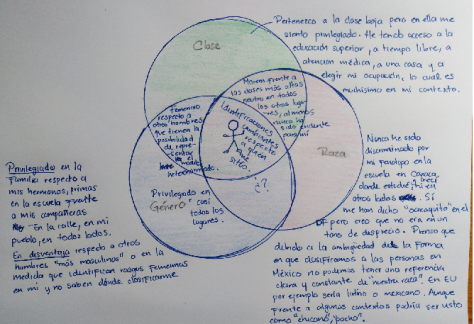 Clase
Pertenezco a la clase baja pero en ella me
siento privilegiado. He tenido acceso a la
educación superior, a tiempo libre, a
atención médica, a una casa y a
elegir mi ocupación, lo cual es
muchísimo en mi contexto.
Moreno frente a
las clases más altas
neutro en todos
los otros lugares
Femenino
respecto a
otros hombres
que tienen la
posibilidad
de
Identificaciones
respecto
a quien
me
sitúo.
Raza
¿?
Privilegiado en
Género casi
todos los
lugares.
Privilegiado en la
familia respecto a
mis hermanas, primas
en la escuela frente
a mis compañeras
En la calle, en mi
pueblo, en todos lados.
En desventaja respecto a otros
hombres "más masculinos" o en la
medida que identifican rasgos femeninos
en mí y no saben dónde clasificarme
Nunca he sido
discriminado por
mi fenotipo en la
escuela en Oaxaca,
donde estudié, ni en
otros lados. Sí
me han dicho "oaxaquito" en el
DF pero creo que no era en un
tono de desprecio. Pienso que
debido a la ambigüedad de la forma
en que clasificamos a las personas en
México no podemos tener una referencia
clara y constante de "nuestra raza". En EU
por ejemplo sería latino o mexicano. Aunque
frente a algunos contextos podría ser visto
como "chicano", "pocho".